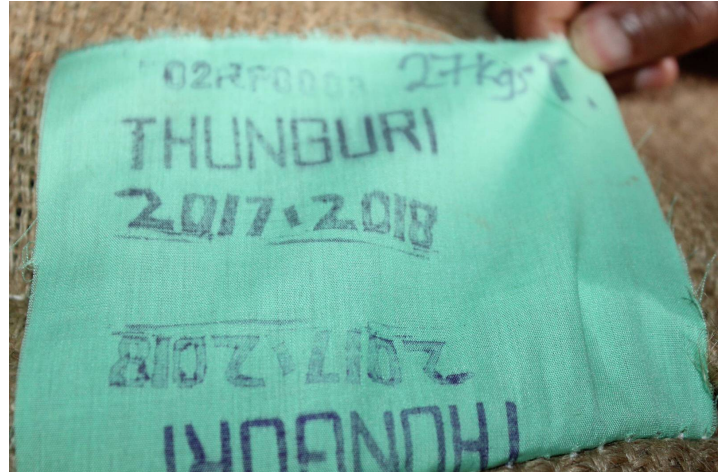 02RF0003 27kgs T.
THUNGURI
2017.2018
2017.2018
THUNGURI